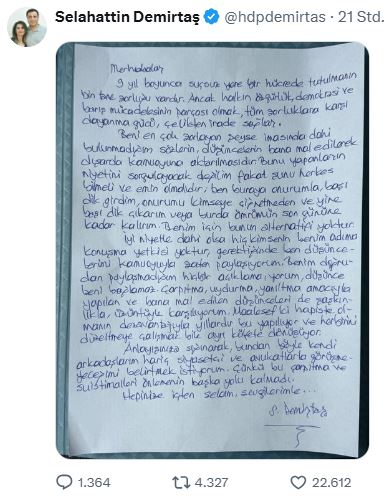 Selahattin Demirtaş @hdpdemirtas · 21 Std.
Merhabalar,
9 yıl boyunca suçsuz yere bir hücrede tutulmanın
bin türlü zorluğu vardır. Ancak halkın özgürlük, demokrasi ve
barış mücadelesinin parçası olmak, tüm zorluklara karşı
dayanma gücü, çelikten irade sağlar.
Beni en çok zorlayan şeyse imasında dahi
bulunmadığım sözlerin, düşüncelerin bana mal edilerek
dışarda kamuoyuna aktarılmasıdır. Bunu yapanların
niyetini sorgulayacak değilim fakat şunu herkes
bilmeli ve emin olmalıdır, ben buraya onurumla, başı
dik girdim, onurumu kimseye çiğnetmeden ve yine
başı dik çıkarım veya burda ömrümün son gününe
kadar kalırım. Benim için bunun alternatifi yoktur.
İyi niyetle dahi olsa hiç kimsenin benim adıma
konuşma yetkisi yoktur, gerektiğinde ben düşünce-
lerimi kamuoyuyla zaten paylaşıyorum. Benim doğru-
dan paylaşmadığım hiçbir açıklama, yorum, düşünce
beni bağlamaz. Çarpıtma, uydurma, yanıltma amacıyla
yapılan ve bana mal edilen düşünceleri de şaşkın-
lıkla, üzüntüyle karşılıyorum. Maalesef ki hapiste ol-
manın dezavantajıyla yıllardır bu yapılıyor ve herbirini
düzeltmeye çalışmak bile ayrı külfete dönüşüyor.
Anlayışınıza sığınarak, bundan böyle kendi
arkadaşlarım hariç siyasetçi ve avukatlarla görüşme-
yeceğimi belirtmek istiyorum. Çünkü bu çarpıtma ve
suistimalleri önlemenin başka yolu kalmadı.
Hepinize içten selam, sevgilerimle...
S. Demirtaş
1.364 4.327 22.612